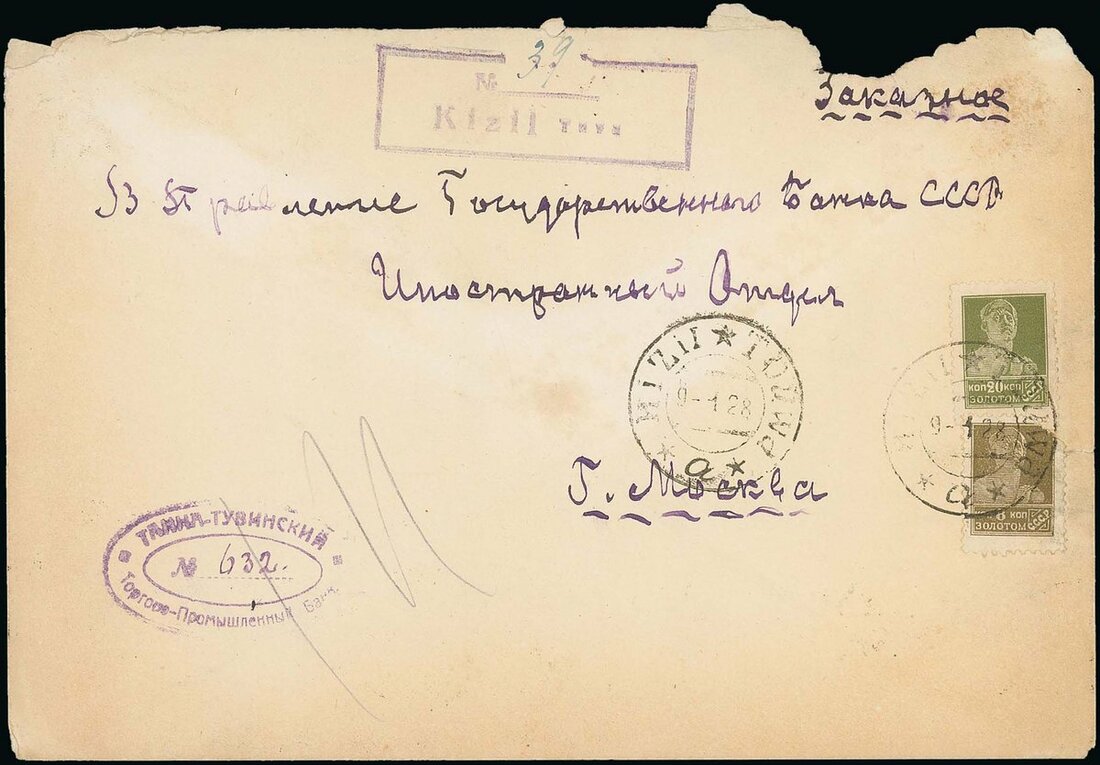 № 39
Kizil Tuva
Заказное
В Правление Государственного Банка СССР
Иностранный Отдел
KIZII TOUWA
9-1 28
a
Г. Москва
КОП 20 КОП
ЗОЛОТОМ СССР
9-1 28
a
8 КОП
ЗОЛОТОМ СССР
ТАННА-ТУВИНСКИЙ
№ 632.
Торгово-Промышленный Банк